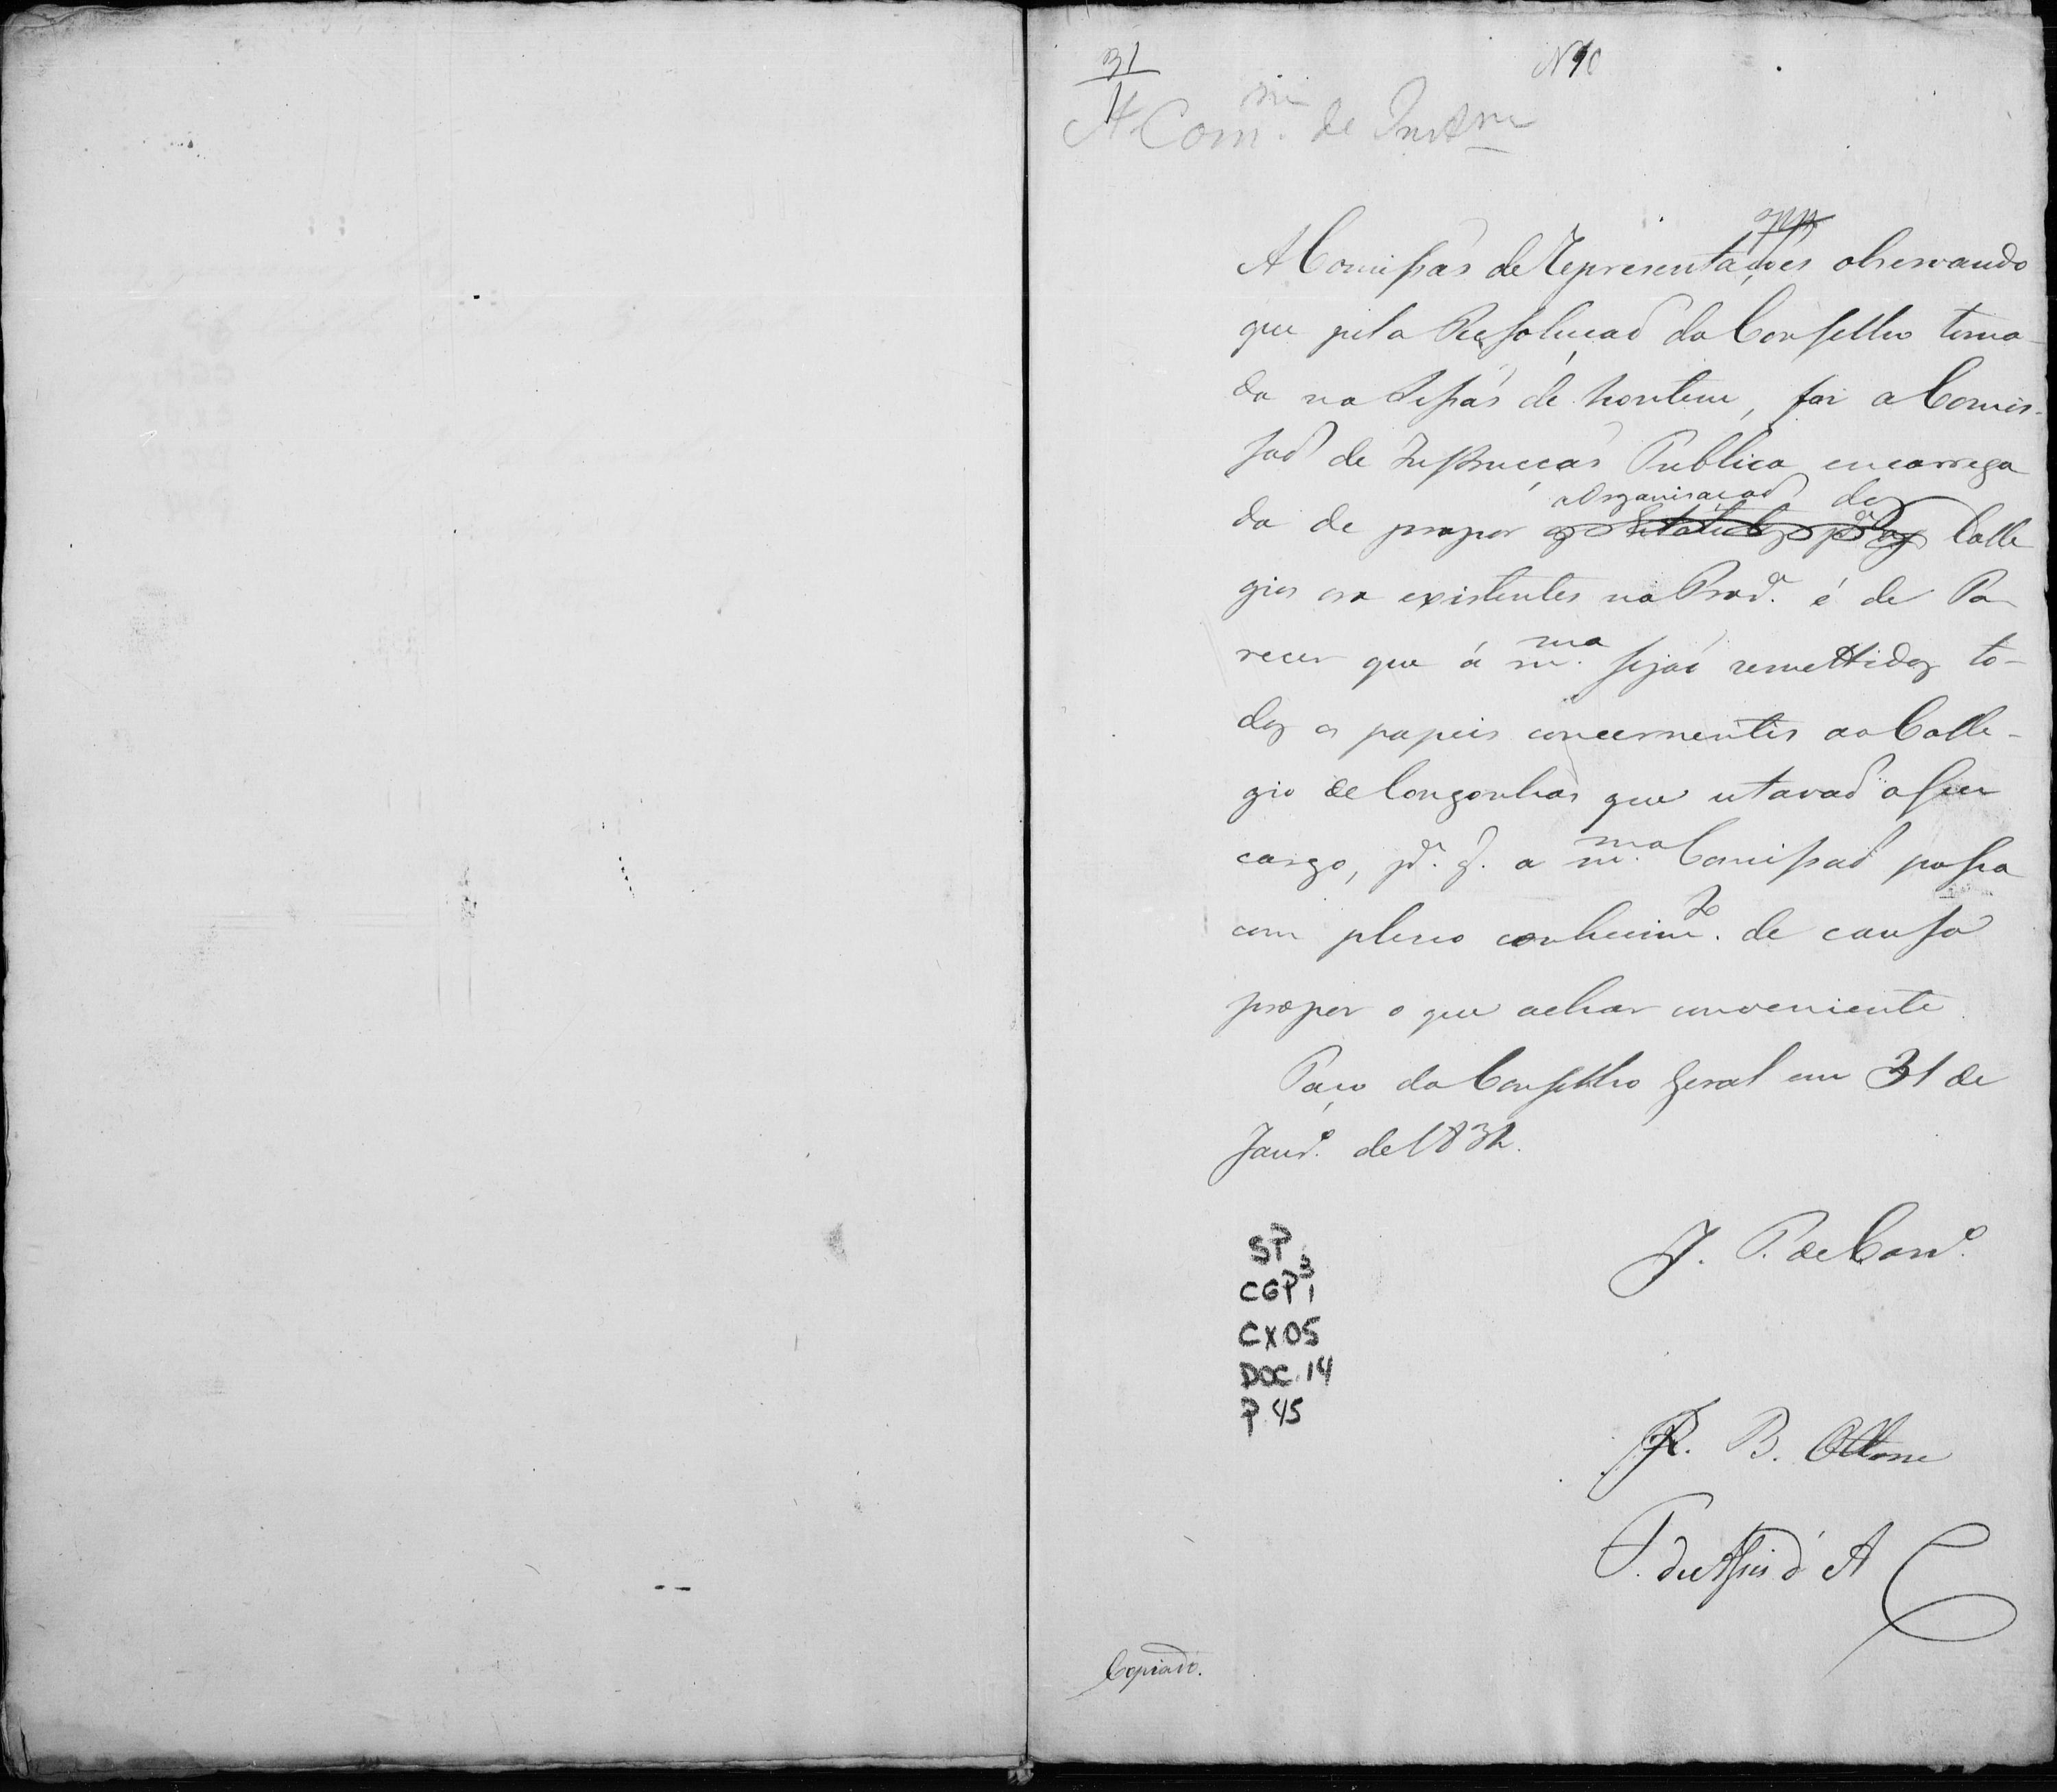 31
Nº 10
A Com.m de Instru
A Comissaõ de Representações observando
que pela Resoluçaõ do Conselho toma-
da na Sessaõ de hontem, foi a Comis-
saõ de Instrucçaõ Publica encarrega
da de propor a Organisaçaõ dos Colle
gios ora existentes na Prov.ª é de Pa
recer que á m.ma sejaõ remettidos to-
dos os papeis concernentes ao Colle-
gio de Congonhas que estavaõ a seu
cargo, p.ª q. a m.ma Comissaõ possa
com pleno conhecim.to de causa
propor o que achar conveniente.
Paço do Conselho Geral em 31 de
Janr.º de 1832.
J. P. de Carv.º
SP
CGP 3
1
CX05
DOC. 14
P. 45
B. Ottone
F. de Assis d' A
Copiado.